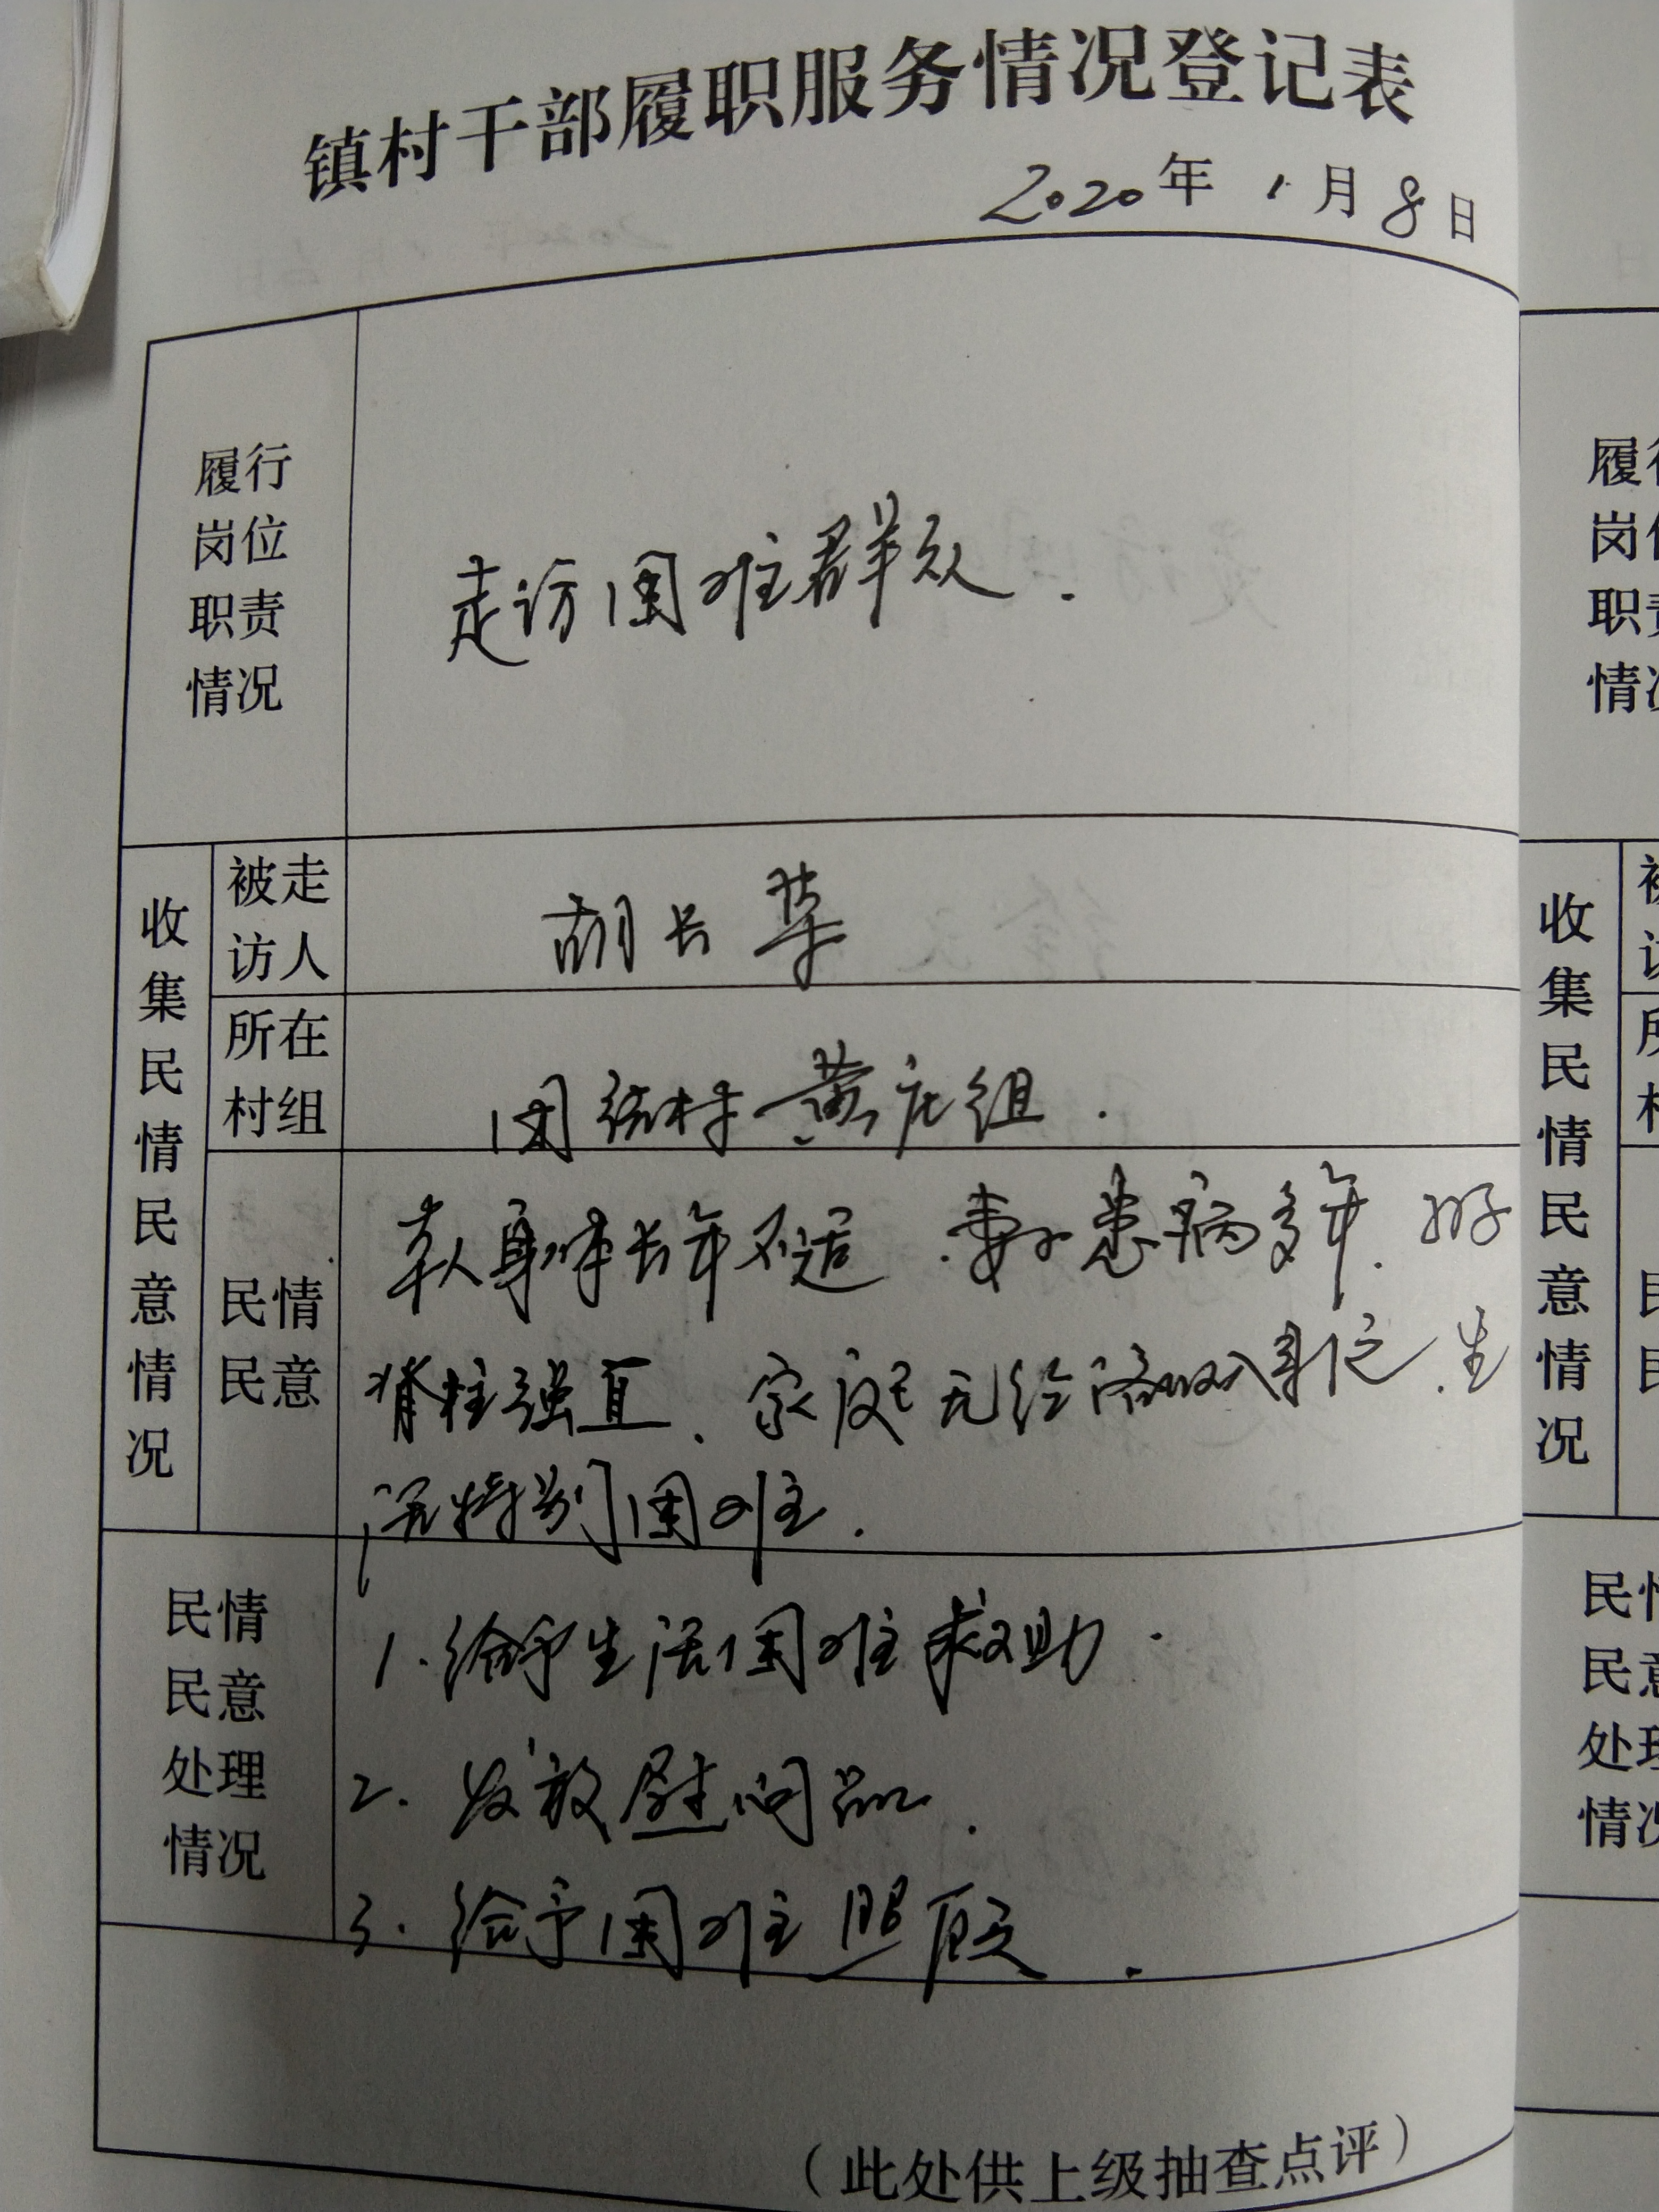 镇村干部履职服务情况登记表
2020年1月8日
履行
岗位
职责
情况
走访困难群众.
收集民情民意情况
被走
访人
胡长华
所在
村组
团结村黄庄组.
民情
民意
本人身体长年不适.妻子患病多年.
脊柱强直、家庭无经济收入来源.生
活特别困难.
民情
民意
处理
情况
1.给予生活困难救助.
2.发放慰问品.
3.给予困难照顾.
(此处供上级抽查点评)
履行
岗位
职责
情况
收集民情民意情况
民情
民意
处理
情况